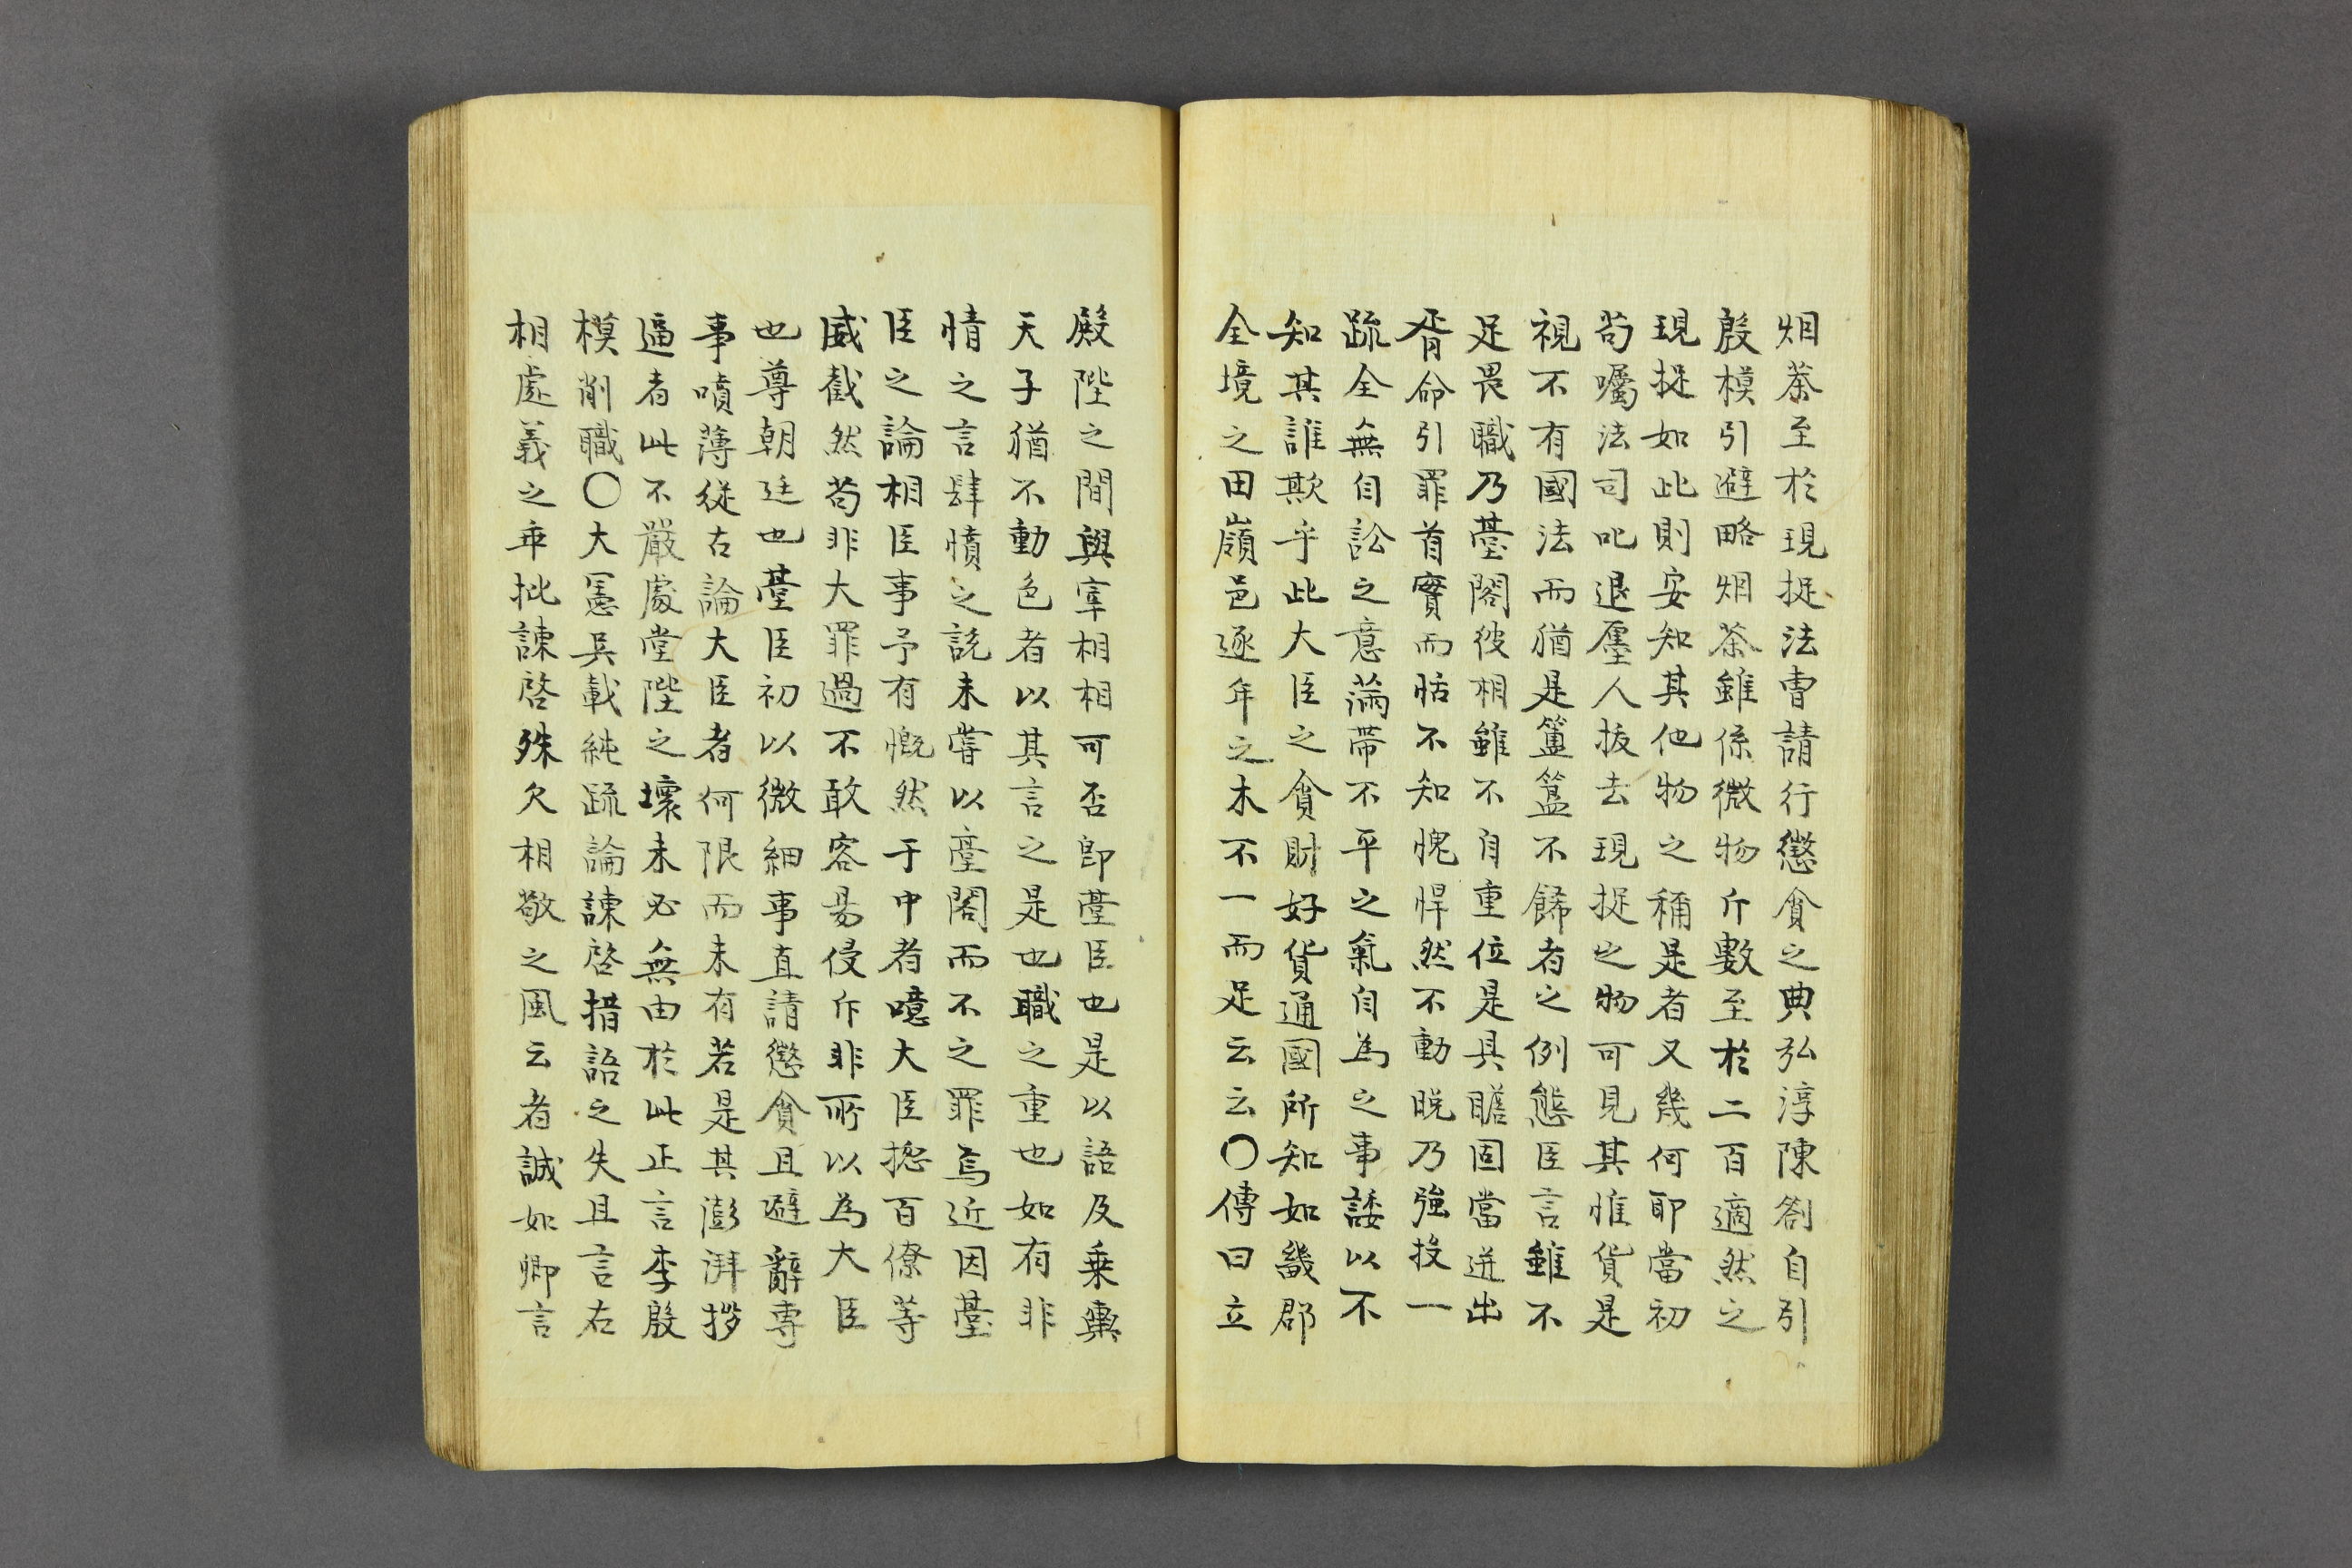 烟茶至於現捉法曺請行懲貪之典弘淳陳劄自引
殷模引避略烟茶雖係微物斤數至於二百適然之
現捉如此則安知其他物之稱是者又幾何耶當初
苟囑法司叱退廛人扳去現捉之物可見其惟貨是
視不有國法而猶是簠簋不餙者之例態臣言雖不
足畏職乃臺閣彼相雖不自重位是具瞻固當迸出
胥命引罪首實而恬不知愧悍然不動晩乃強投一
疏全無自訟之意滿帶不平之氣自為之事諉以不
知其誰欺乎此大臣之貪財好貨通國所知如畿郡
全境之田嶺邑逐年之木不一而足云云〇傳曰立
殿陛之間與宰相相可否卽䑓臣也是以語及乗輿
天子猶不動色者以其言之是也職之重也如有非
情之言肆憤之說未嘗以䑓閣而不之罪焉近因䑓
臣之論相臣事予有慨然于中者噫大臣揔百僚等
威截然苟非大罪過不敢容易侵斥非所以為大臣
也尊朝廷也䑓臣初以微細事直請懲貪且避辭専
事噴薄從古論大臣者何限而未有若是其澎湃拶
逼者此不嚴處堂陛之壞未必無由於此正言李殷
模削職〇大憲吳載純疏論諫啓措語之失且言右
相處義之乖批諫啓殊欠相敬之風云者誠如卿言